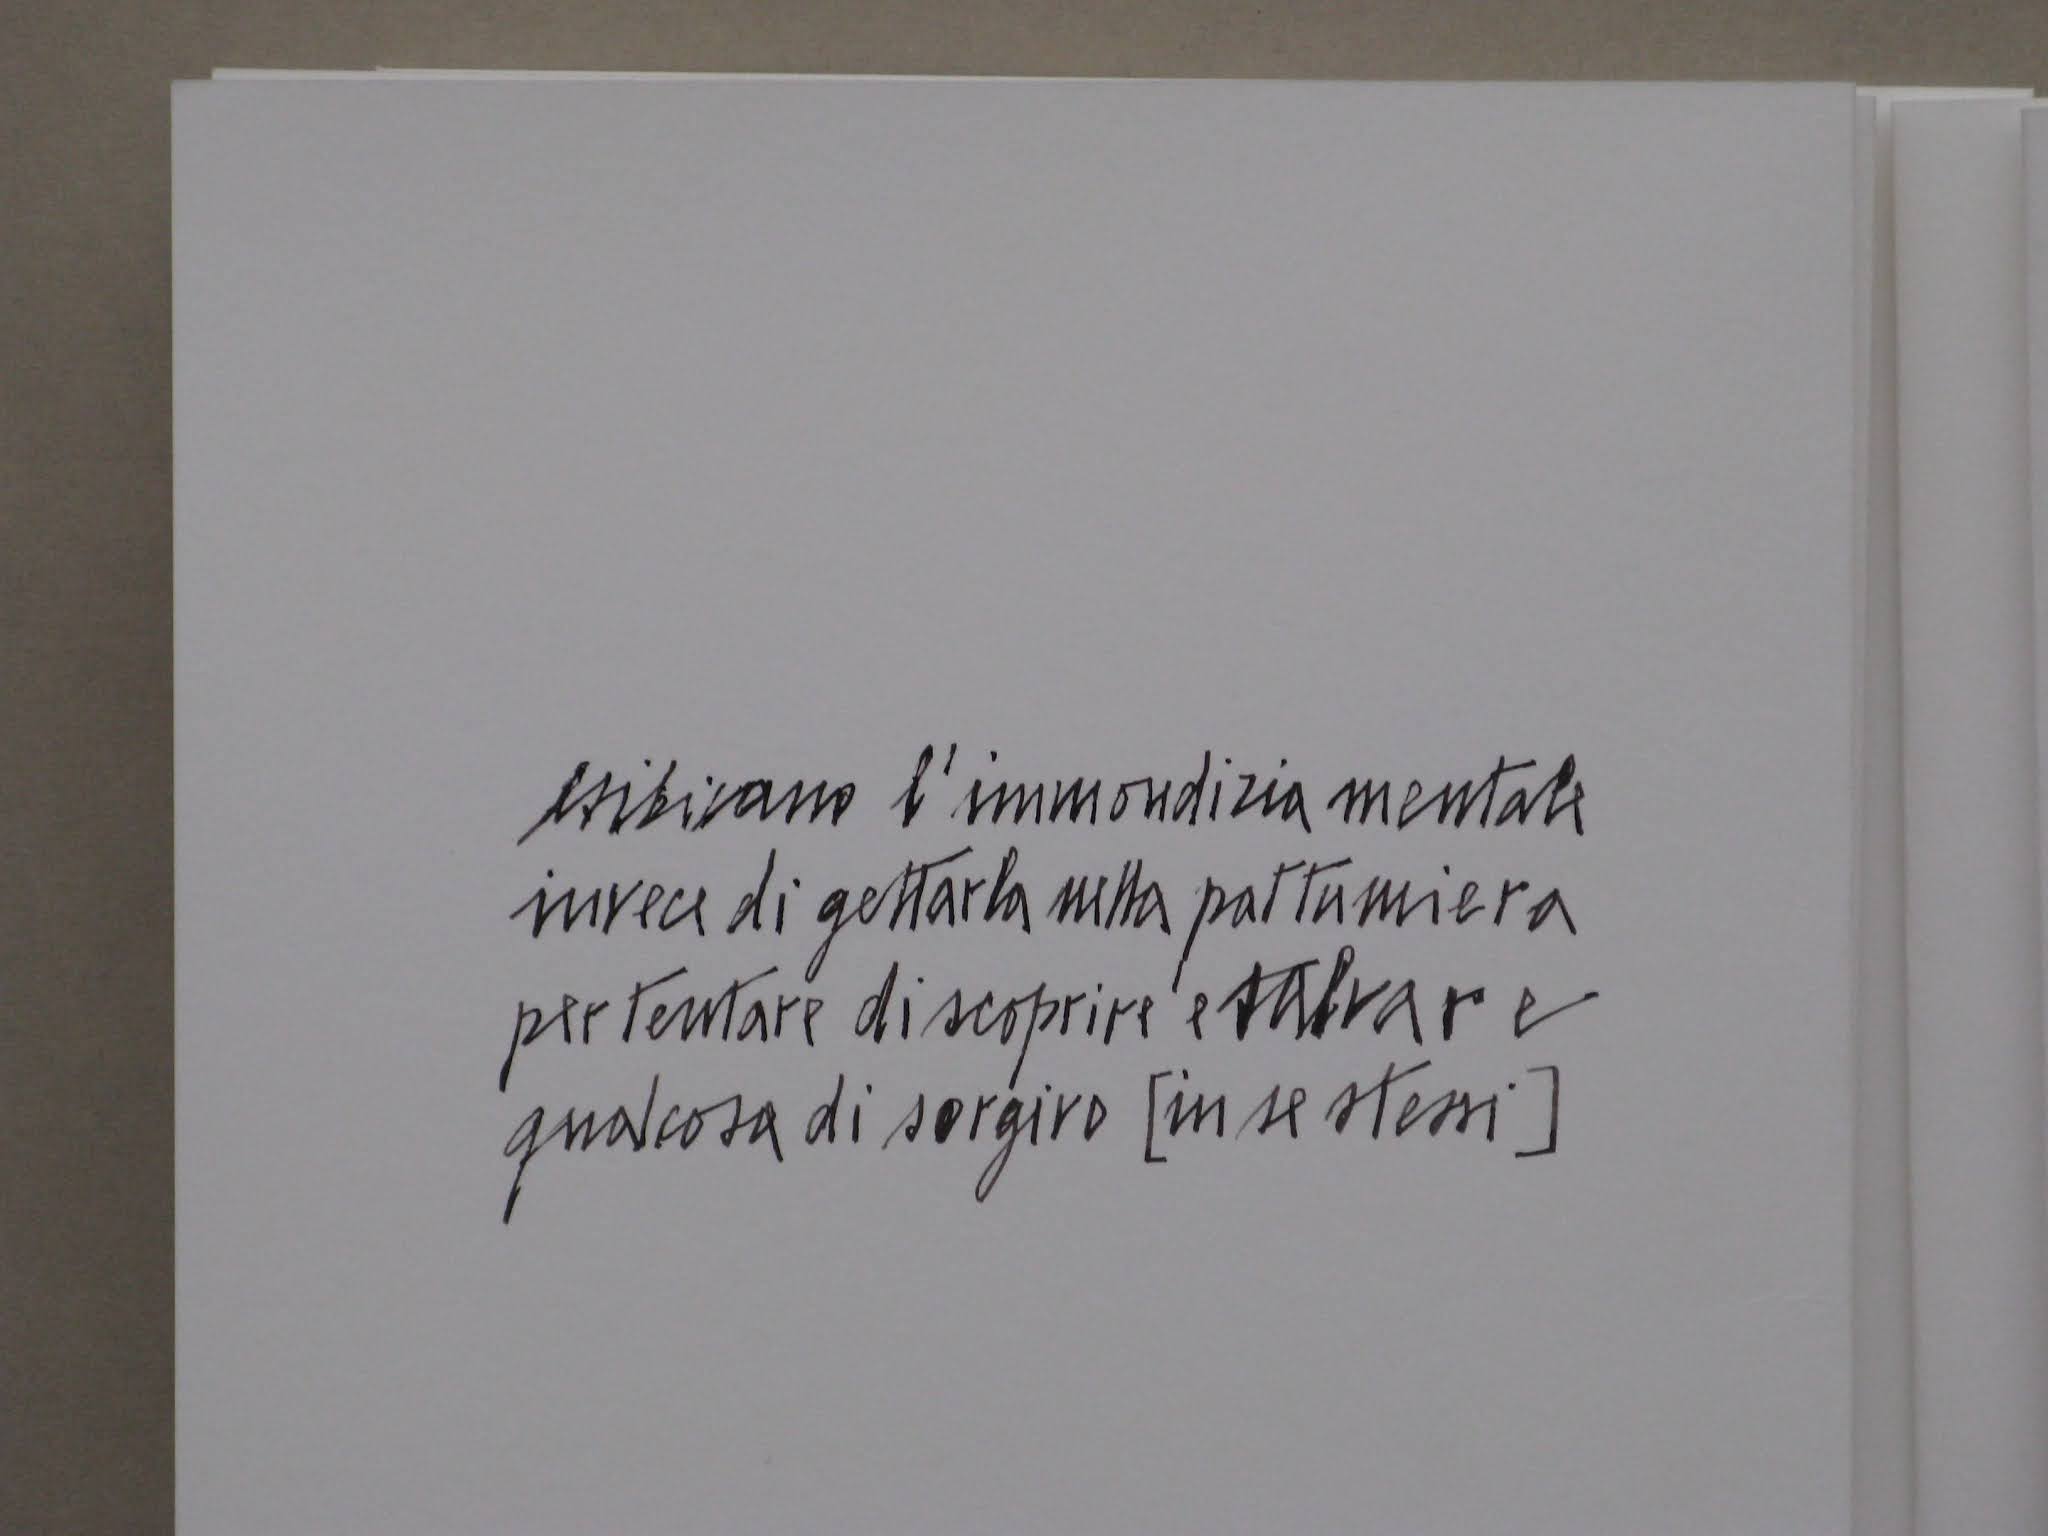 esibivano l'immondizia mentale
invece di gettarla nella pattumiera
per tentare di scoprire e salvare
qualcosa di sorgivo [in se stessi]